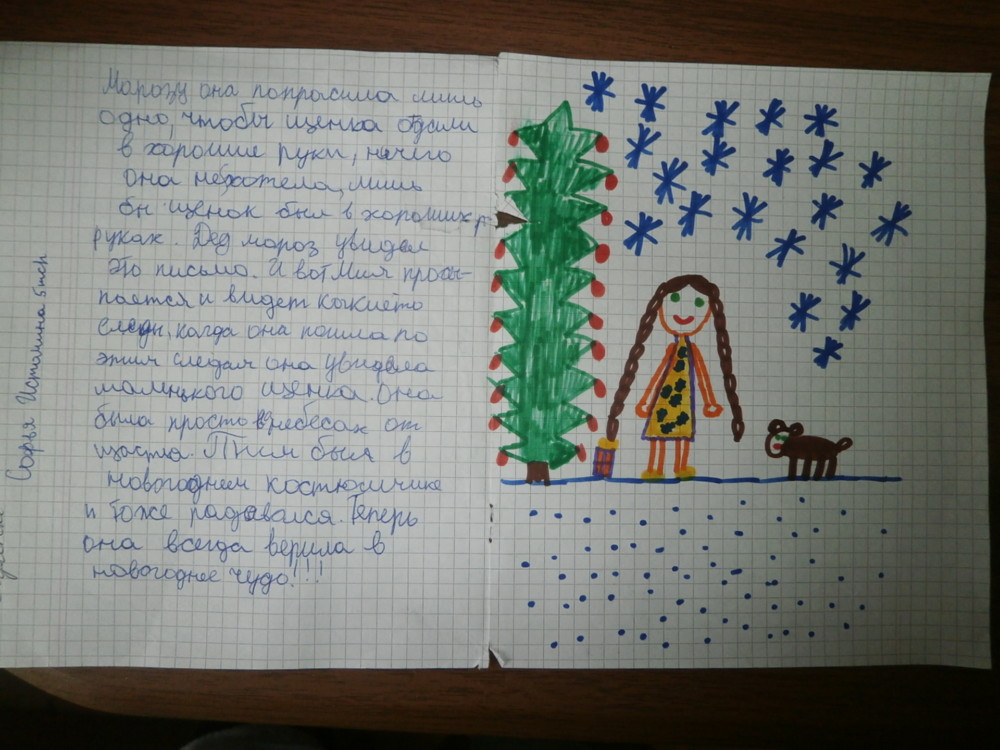 Морозу она попрасила лишь
одно, чтобы щенка отдали
в хорошие руки, ничего
она нехотела, лишь
бы щенок был в хороших р
руках. Дед мороз увидел
это письмо. И вот Мия просы-
пается и видет какието
следы, когда она пошла по
этим следам она увидела
маленького щенка. Она
была просто в небесах от
щастья. был в
новогоднем костюмчике
и тоже радовался. Теперь
она всегда верила в
новогоднее чудо!!!
Софья